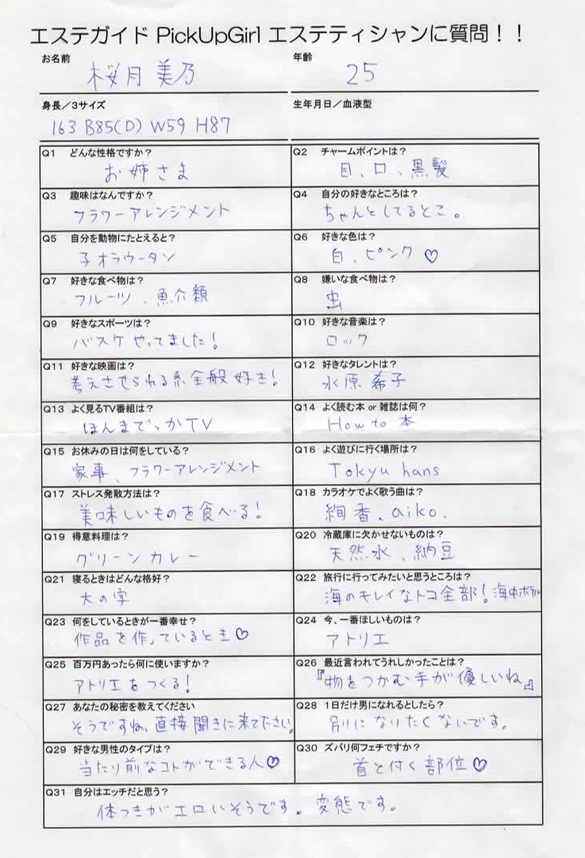 エステガイド PickUpGirl エステティシャンに質問！！
お名前
桜月 美乃
年齢
25
身長／3サイズ
163 B85(D) W59 H87
生年月日／血液型
Q1 どんな性格ですか？
お姉さま
Q2 チャームポイントは？
目、口、黒髪
Q3 趣味はなんですか？
フラワーアレンジメント
Q4 自分の好きなところは？
ちゃんとしてるとこ。
Q5 自分を動物にたとえると？
子オラウータン
Q6 好きな色は？
白、ピンク♡
Q7 好きな食べ物は？
フルーツ、魚介類
Q8 嫌いな食べ物は？
虫
Q9 好きなスポーツは？
バスケやってました！
Q10 好きな音楽は？
ロック
Q11 好きな映画は？
考えさせられる系全般好き！
Q12 好きなタレントは？
水原 希子
Q13 よく見るTV番組は？
ほんまでっかTV
Q14 よく読む本 or 雑誌は何？
How to 本
Q15 お休みの日は何をしている？
家事、フラワーアレンジメント
Q16 よく遊びに行く場所は？
Tokyu hans
Q17 ストレス発散方法は？
美味しいものを食べる！
Q18 カラオケでよく歌う曲は？
絢香、aiko.
Q19 得意料理は？
グリーンカレー
Q20 冷蔵庫に欠かせないものは？
天然水、納豆
Q21 寝るときはどんな格好？
大の字
Q22 旅行に行ってみたいと思うところは？
海のキレイなトコ全部！海中ホテル
Q23 何をしているときが一番幸せ？
作品を作っているとき♡
Q24 今、一番ほしいものは？
アトリエ
Q25 百万円あったら何に使いますか？
アトリエをつくる！
Q26 最近言われてうれしかったことは？
『物をつかむ手が優しいね』
Q27 あなたの秘密を教えてください
そうですね、直接聞きに来て下さい。
Q28 1日だけ男になれるとしたら？
別になりたくないです。
Q29 好きな男性のタイプは？
当たり前なコトができる人♡
Q30 ズバリ何フェチですか？
首と付く部位♡
Q31 自分はエッチだと思う？
体つきがエロいそうです。変態です。